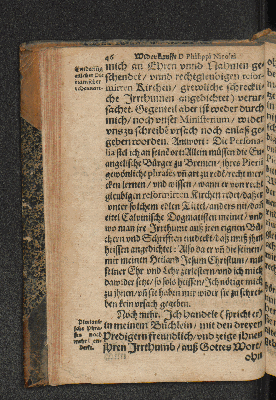 46 Widerkunfft D. Philippi Nicolai
mich an Ehren vnnd Nahmen ge-
schendet / vnnd rechtgleubigen refor-
mirten Kirchen / grewliche schreckli-
che Irrthumen angedichtet) verur-
sachet. Gegenteil aber ist weder durch
mich / noch vnser Ministerium / wider
vns zu schreiben vrsach noch anlaß gege-
ben worden. Antwort: Die Persona-
lia stel ich an seinen ort: Allein müssen die Eu-
angelische Bürger zu Bremen / ihres
gewönliche phrases vnd art zu reden / recht mer-
cken lernen / vnd wissen / wann er von recht-
gleubigen reformirten Kirchen redet / daß er
vnter solchem edlen Tittel / anders nit / dann
eitel Calvinische Dogmatisten meinet / vnd
wo man jre Irrthume auß jren eignen Bü-
chern vnd Schrifften entdeckt / daß muß jhm
heissen angedichtet: Also da er vnd die seinen
mir meinen Herrn Jesum Christum / mit
seiner Ehr vnd Lehr zerlestern / vnd ich mich
dawider setze / so sols heissen / Ich nötige mich
zu jhnen / vnd sie haben mir wider sie zu schrei-
ben kein vrsach gegeben.
Noch mehr. Ich handele (spricht er)
in meinem Büchlein / mit den dreyen
Predigern freundlich / vnd zeige jhnen
jhren Irrthumb / auß Gottes Wort /
ohn